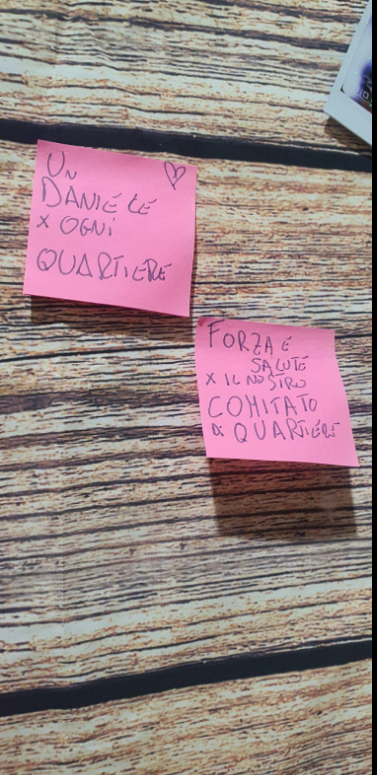 UN
DANIELE
X OGNI
QUARTIERE
FORZA E
SALUTE
X IL NOSTRO
COMITATO
DI QUARTIERE